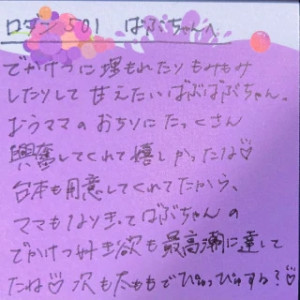 ロダン501 ばぶちゃんへ
でかけつに埋もれたりもみもみ
したりして甘えたいばぶばぶちゃん。
むうママのおちりにたっくさん
興奮してくれて嬉しかったな♡
台本も用意してくれてたから、
ママもなりきってばぶちゃんの
でかけつ欲も最高潮に達して
たね♡次も太ももでぴゅっぴゅする?♡